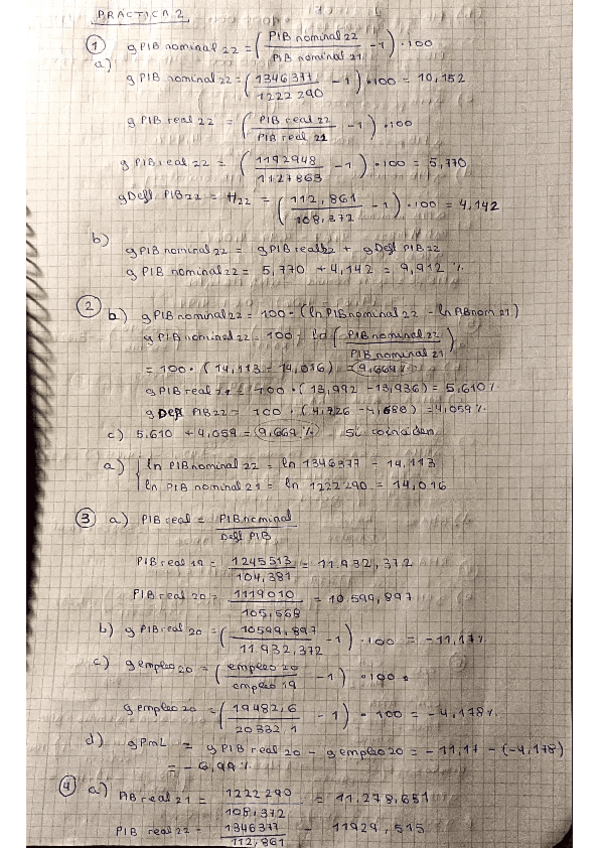 PRÁCTICA 2
① g PIB nominal 22 = (PIB nominal 22 / PIB nominal 21 - 1) · 100
a)
g PIB nominal 22 = (1346377 / 1222290 - 1) · 100 = 10,152
g PIB real 22 = (PIB real 22 / PIB real 21 - 1) · 100
g PIB real 22 = (1192948 / 1127863 - 1) · 100 = 5,770
g Defl PIB 22 = π22 = (112,861 / 108,372 - 1) · 100 = 4,142
b)
g PIB nominal 22 = g PIB real 22 + g Defl PIB 22
g PIB nominal 22 = 5,770 + 4,142 = 9,912 %
② b) g PIB nominal 22 = 100 · (ln PIB nominal 22 - ln PIB nom 21)
g PIB nominal 22 = 100 · ln (PIB nominal 22 / PIB nominal 21)
= 100 · (14,113 - 14,016) = 9,669 %
g PIB real 22 = 100 · (13,992 - 13,936) = 5,610 %
g Defl PIB 22 = 100 · (4,726 - 4,686) = 4,059 %
c) 5,610 + 4,059 = 9,669 % Si coinciden
a) ln PIB nominal 22 = ln 1346377 = 14,113
ln PIB nominal 21 = ln 1222290 = 14,016
③ a) PIB real = PIB nominal / Defl PIB
PIB real 19 = 1245513 / 104,381 = 11.932,372
PIB real 20 = 1119010 / 105,568 = 10.599,897
b) g PIB real 20 = (10599,897 / 11.932,372 - 1) · 100 = -11,17 %
c) g empleo 20 = (empleo 20 / empleo 19 - 1) · 100
g empleo 20 = (19482,6 / 20332,1 - 1) · 100 = -4,178 %
d) g PmL = g PIB real 20 - g empleo 20 = -11,17 - (-4,178)
= -6,99 %
④ a) PIB real 21 = 1222290 / 108,372 = 11.278,651
PIB real 22 = 1346377 / 112,861 = 11929,515